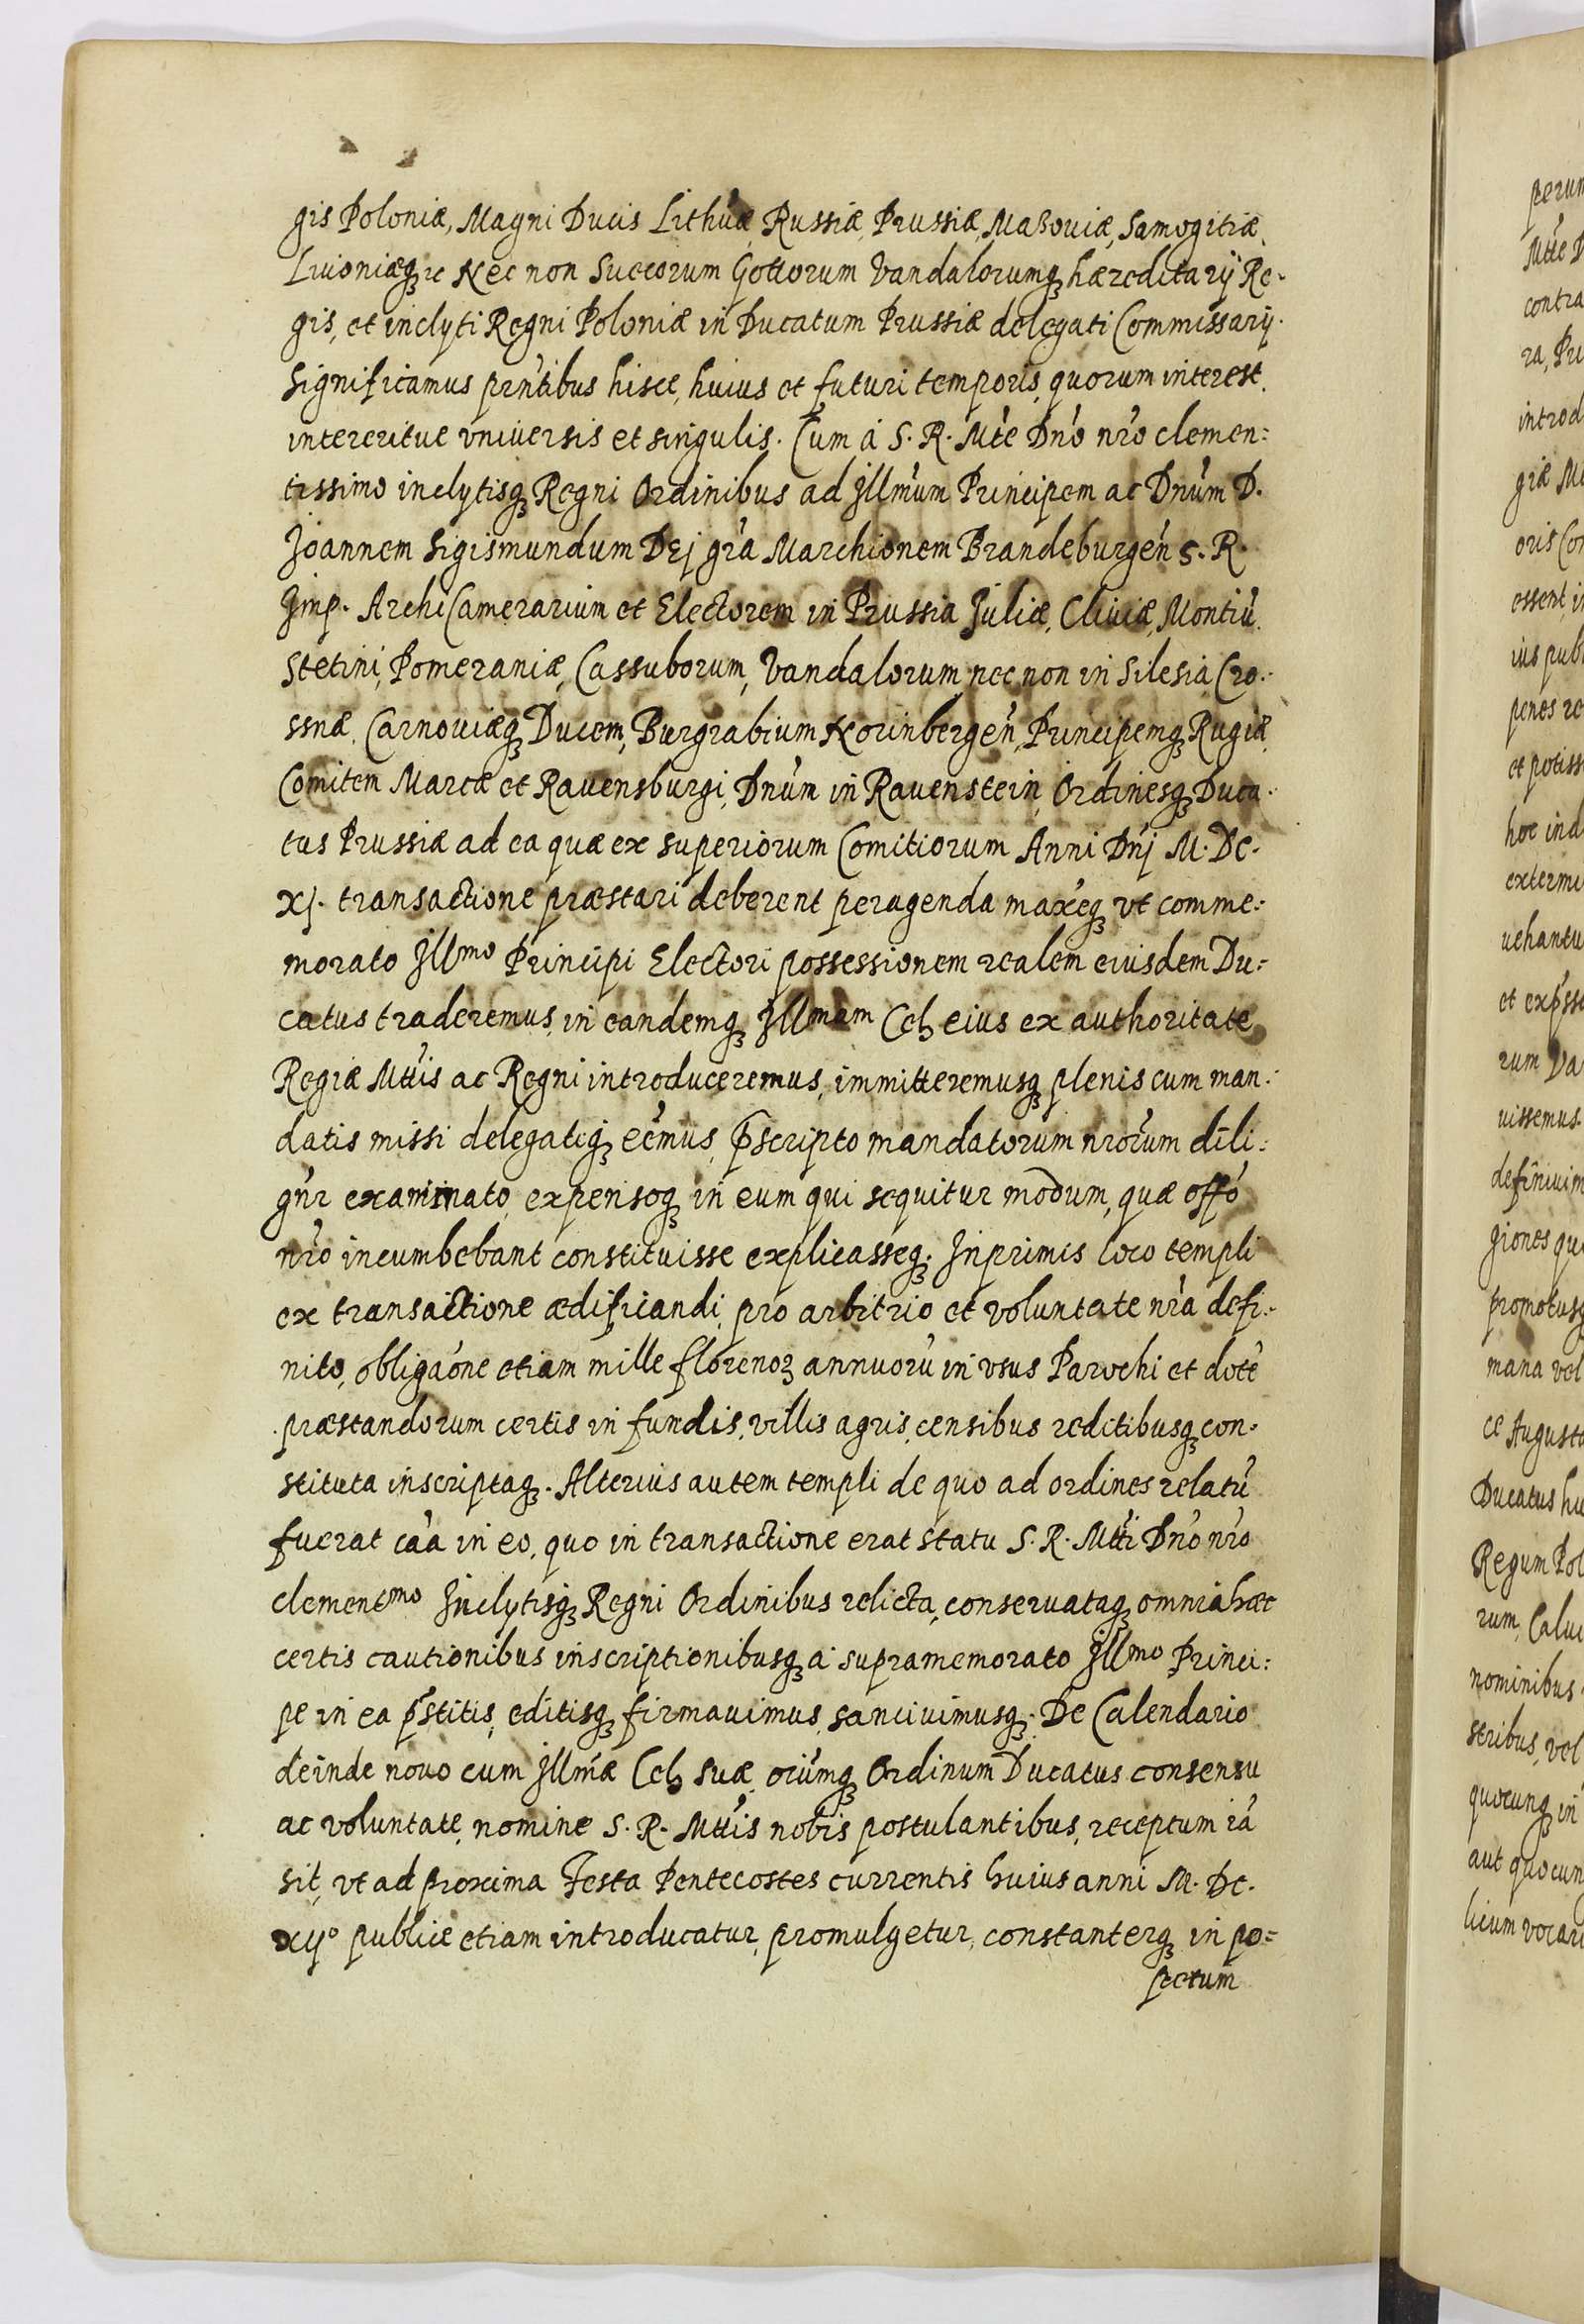 gis Poloniæ, Magni Ducis Lithuæ, Russiæ, Prussiæ, Masouiæ, Samogitiæ,
Liuoniæqꝫ ꝛc Nec non Suecorum Gottorum Vandalorumqꝫ hæreditarÿ Re-
gis, et inclyti Regni Poloniæ in Ducatum Prussiæ delegati Commissarÿ.
Significamus prñtibus hisce, huius et futuri temporis, quorum interest,
intereritue vniuersis et singulis. Cum à S. R. Mtte Dnõ nrõ clemen:
tissimo inclytisqꝫ Regni Ordinibus ad Jllmũm Principem ac Dnũm D.
Joannem Sigismundum Dej grã Marchionem Brandeburgeñ S. R.
Jmp. ArchiCamerarium et Electorem in Prussia Juliæ, Cliuiæ, Montiũ,
Stetini, Pomeraniæ, Cassuborum, Vandalorum, nec non in Silesia Cro-
ssnæ, Carnouiæqꝫ Ducem, Burgrabium Norinbergeñ, Principemqꝫ Rugiæ,
Comitem Marcæ et Rauensburgi, Dnũm in Rauenstein, Ordinesqꝫ Duca-
tus Prussiæ ad ea quæ ex superiorum Comitiorum Anni Dnj M. DC.
XJ. transactione præstari deberent peragenda maxéqꝫ vt comme:
morato Jllmo Principi Electori possessionem realem eiusdem Du:
catus traderemus, in eandemqꝫ Jllmam Celꝫ eius ex authoritate
Regiæ Mttis ac Regni introduceremus, immitteremusqꝫ plenis cum man-
datis missi delegatiqꝫ eẽmus, p̃scripto mandatorum nrõrum dili:
gñr examinato, expensoqꝫ in eum qui sequitur modum, quæ offõ
nrõ incumbebant constituisse explicasseqꝫ. Inprimis loco templi
ex transactione ædificandi, pro arbitrio et voluntate nrã defi-
nito, obligaõne etiam mille florenoꝝ annuorũ in vsus Parochi et dotẽ
præstandorum certis in fundis, villis agris, censibus reditibusqꝫ con-
stituta inscriptaqꝫ. Alterius autem templi de quo ad ordines relatũ
fuerat caã in eo, quo in transactione erat statu S. R. Mtti Dnõ nrõ
clementmo Inclytisqꝫ Regni Ordinibus relicta, conseruataqꝫ omnia hæc
certis cautionibus inscriptionibusqꝫ à supramemorato Jllmo Princi:
pe in ea p̃stitis, editisqꝫ firmauimus, sanciuimusqꝫ. De Calendario
deinde nouo cum Jllmæ Celꝫ suæ, oiũmqꝫ Ordinum Ducatus consensu
ac voluntate, nomine S. R. Mttis nobis postulantibus, receptum iã
sit, vt ad proxima Festa Pentecostes currentis huius anni M. DC.
XIJo publicè etiam introducatur, promulgetur, constanterqꝫ in po-
petum